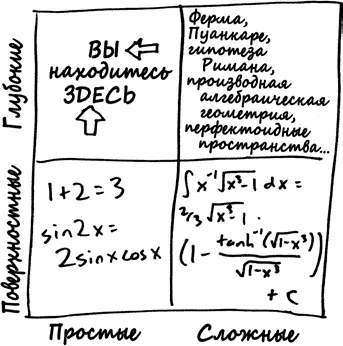 Глубокие
ВЫ
находитесь
ЗДЕСЬ
Ферма,
Пуанкаре,
гипотеза
Римана,
производная
алгебраическая
геометрия,
перфектоидные
пространства...
Поверхностные
1+2=3
sin2x=
2sinxcosx
∫x⁻¹√(x³-1) dx =
2/3 √(x³-1) ·
(1 - tanh⁻¹(√(1-x³)) / √(1-x³))
+ C
Простые
Сложные